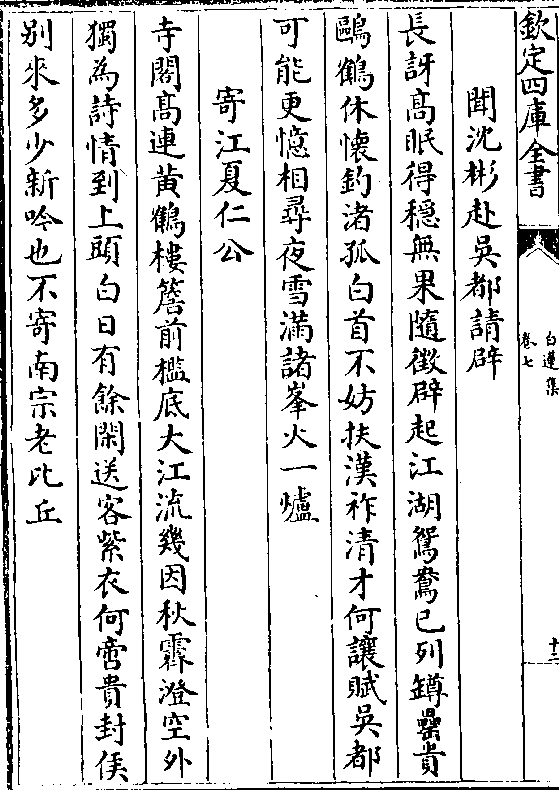 欽定四庫全書
白蓮集
卷七
十二
聞沈彬赴吳都請辟
長訝髙眠得穩無果隨徵辟起江湖鴛鴦已列罇罍貴
鷗鶴休懐釣渚孤白首不妨扶漢祚清才何讓賦吳都
可能更憶相尋夜雪滿諸峯火一爐
寄江夏仁公
寺閣髙連黄鶴樓簷前檻底大江流幾因秋霽澄空外
獨為詩情到上頭白日有餘閑送客紫衣何啻貴封侯
别來多少新吟也不寄南宗老比丘